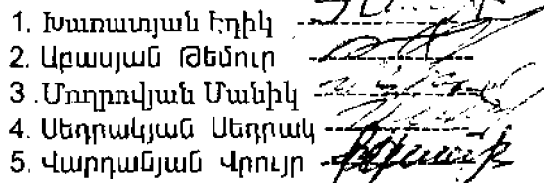 1. Խառատյան Էդիկ
2. Աբասյան Թեմուր
3 .Մողրովյան Մանիկ
4. Սեդրակյան Սեդրակ
5. Վարդանյան Վրույր